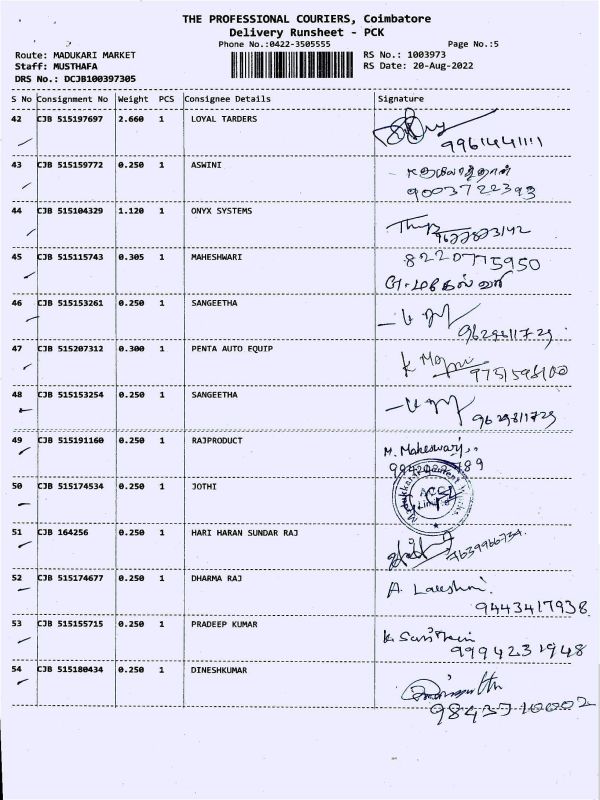 THE PROFESSIONAL COURIERS, Coimbatore
Delivery Runsheet - PCK
Phone No.:0422-3505555
Page No.:5
Route: MADUKARI MARKET
RS No.: 1003973
Staff: MUSTHAFA
RS Date: 20-Aug-2022
DRS No.: DCJB100397305
S No Consignment No Weight PCS Consignee Details Signature
42 CJB 515197697 2.660 1 LOYAL TARDERS
9961441111
43 CJB 515159772 0.250 1 ASWINI
9003722393
44 CJB 515104329 1.120 1 ONYX SYSTEMS
9677873142
45 CJB 515115743 0.305 1 MAHESHWARI
8220775950
46 CJB 515153261 0.250 1 SANGEETHA
9629811729
47 CJB 515207312 0.300 1 PENTA AUTO EQUIP
9751598100
48 CJB 515153254 0.250 1 SANGEETHA
9629811729
49 CJB 515191160 0.250 1 RAJPRODUCT
M. Maheswari
50 CJB 515174534 0.250 1 JOTHI
ACC
Limited
51 CJB 164256 0.250 1 HARI HARAN SUNDAR RAJ
7639966734
52 CJB 515174677 0.250 1 DHARMA RAJ
A. Lakshmi
9443417938
53 CJB 515155715 0.250 1 PRADEEP KUMAR
9994231948
54 CJB 515180434 0.250 1 DINESHKUMAR
9843710002